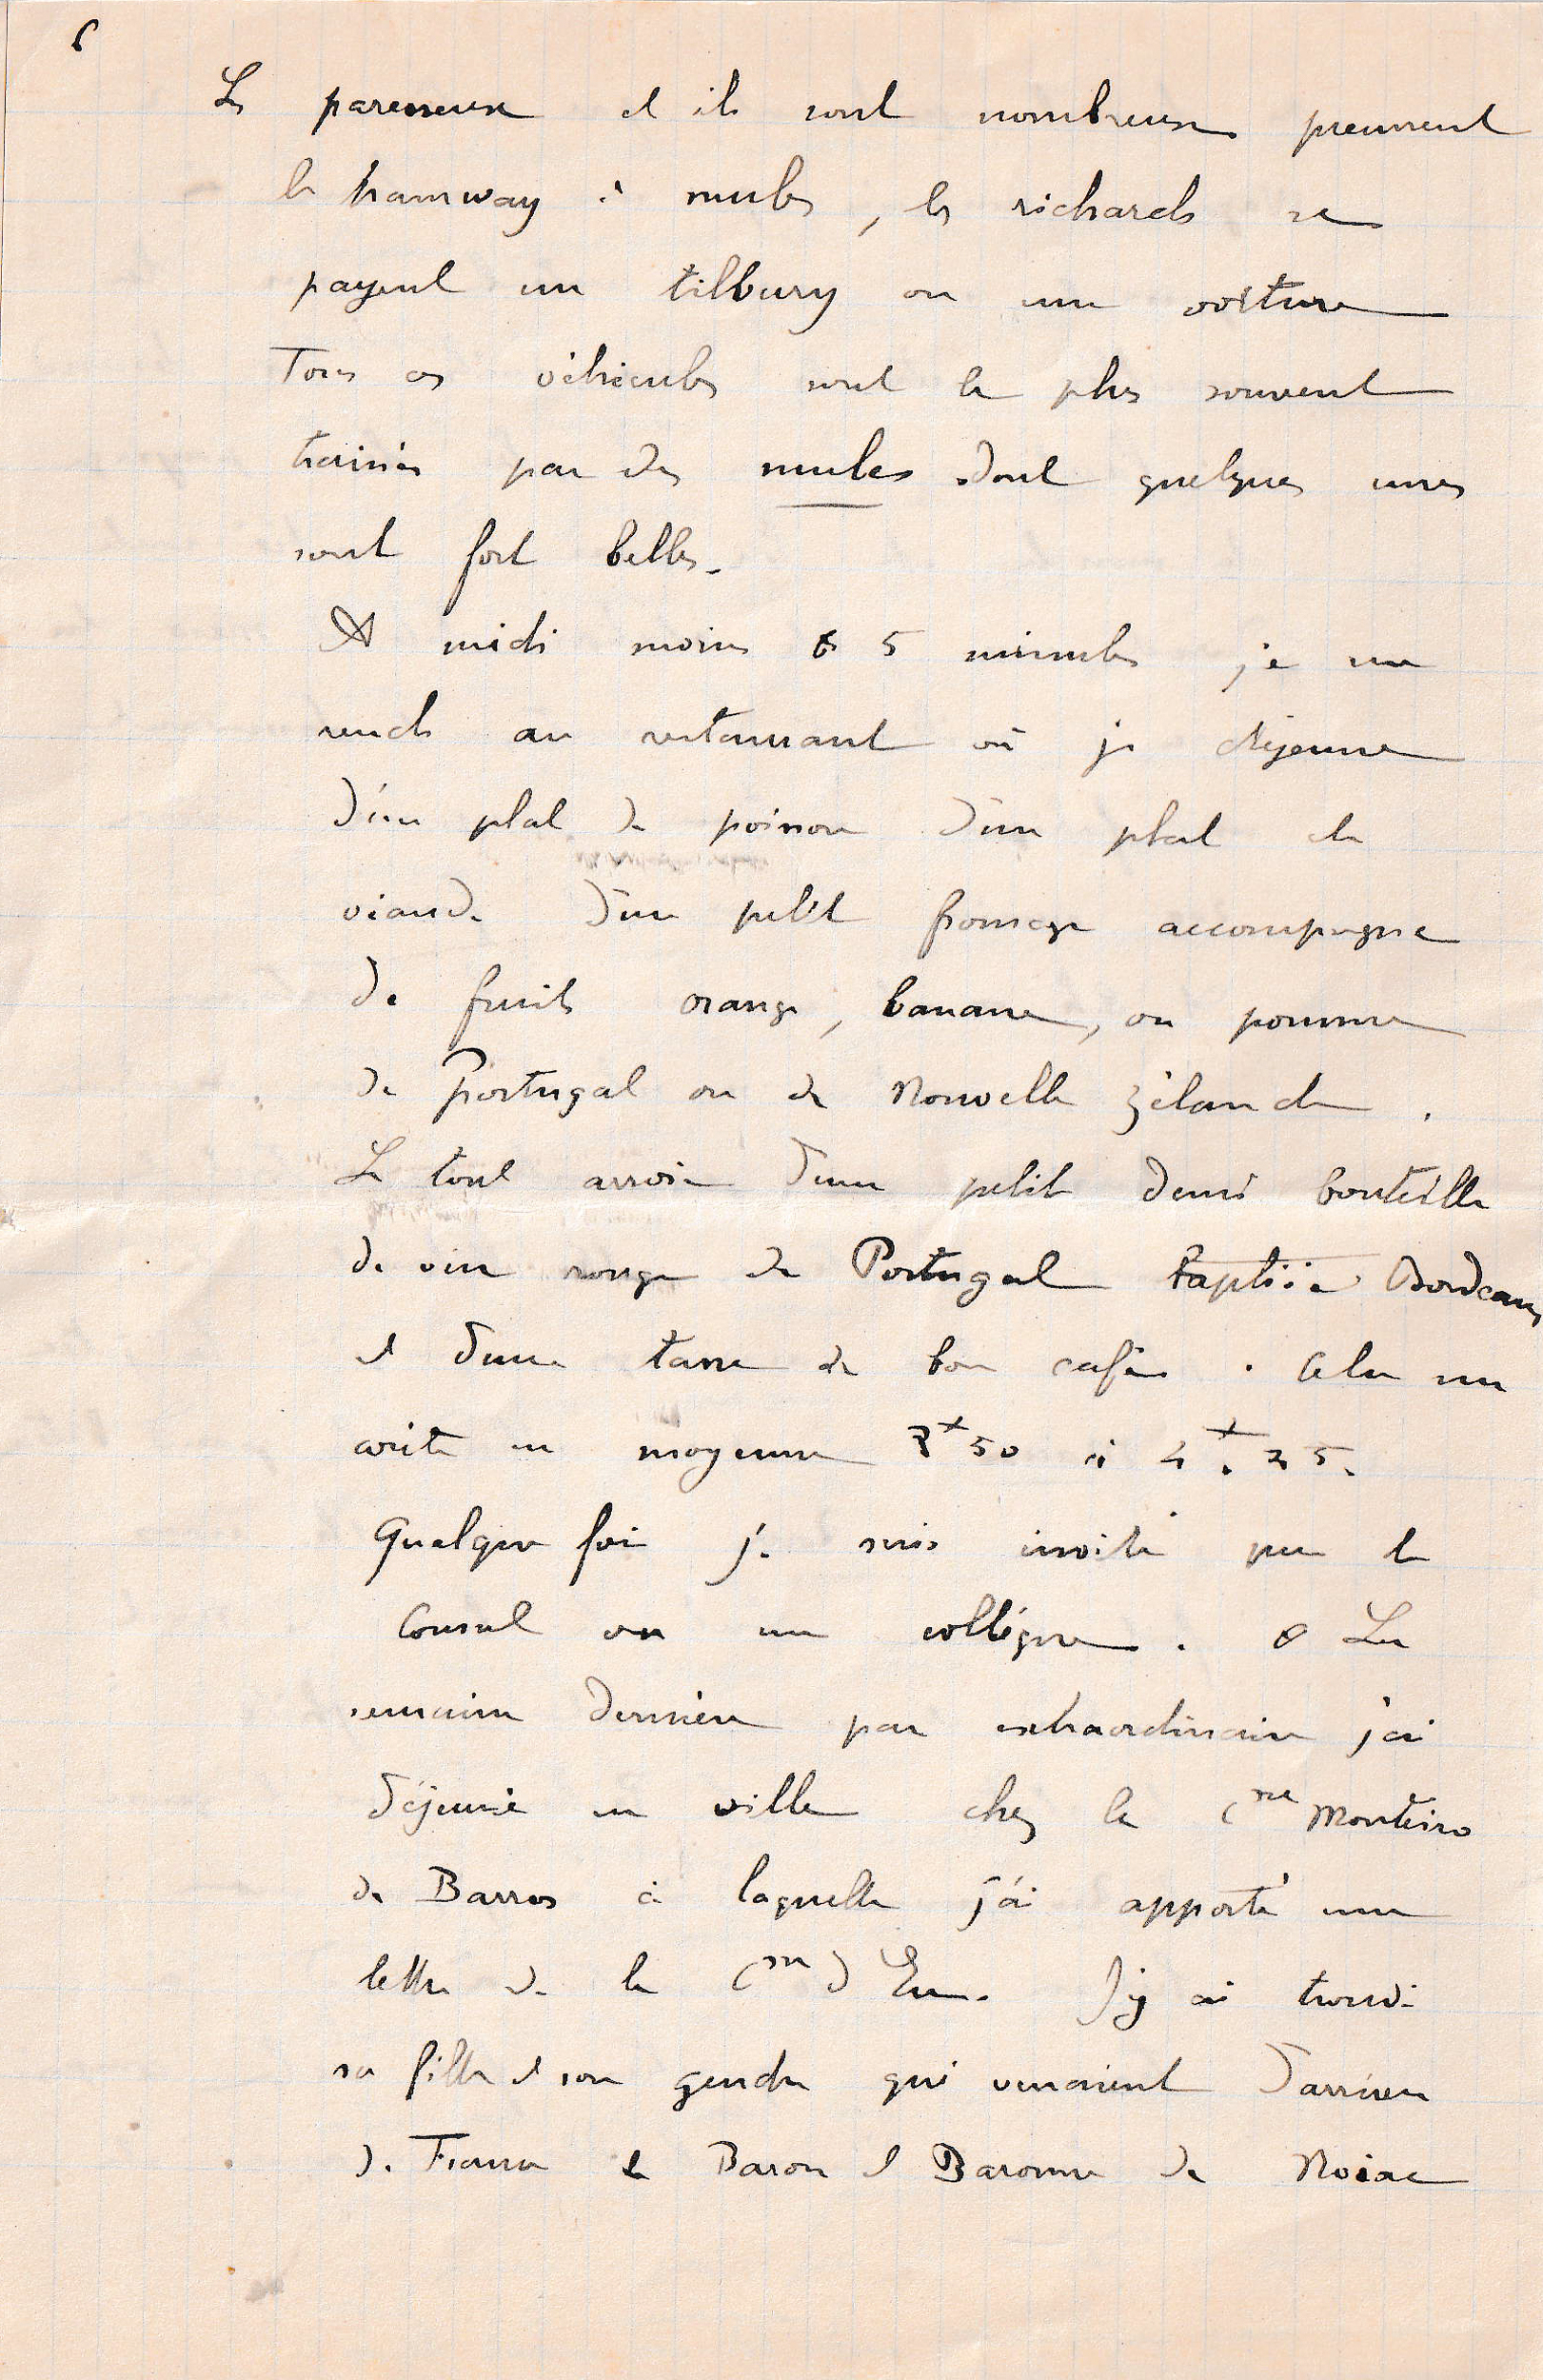 6
Les paresseux et ils sont nombreux prennent
le tramway à mules, les richards se
payent un tilbury ou une voiture
Tous ces véhicules sont le plus souvent
trainés par des mules dont quelques unes
sont fort belles.
A midi moins 5 minutes je me
rends au restaurant où je déjeune
d'un plat de poisson d'un plat de
viande d'un petit fromage accompagné
de fruits orange, banane, ou pomme
de Portugal ou de Nouvelle Zélande.
Le tout arrosé d'une petite demi bouteille
de vin rouge de Portugal baptisée Bordeaux
et d'une tasse de bon café. Cela me
coûte en moyenne 50 à
Quelque fois je suis invité par le
Consul ou un collègue. La
semaine dernière par extraordinaire j'ai
déjeuné en ville chez la Csse Monteiro
de Barros à laquelle j'ai apporté une
lettre de la Csse d'Eu. J'y ai trouvé
sa fille et son gendre qui venaient d'arriver
de France le Baron et Baronne de Noiac